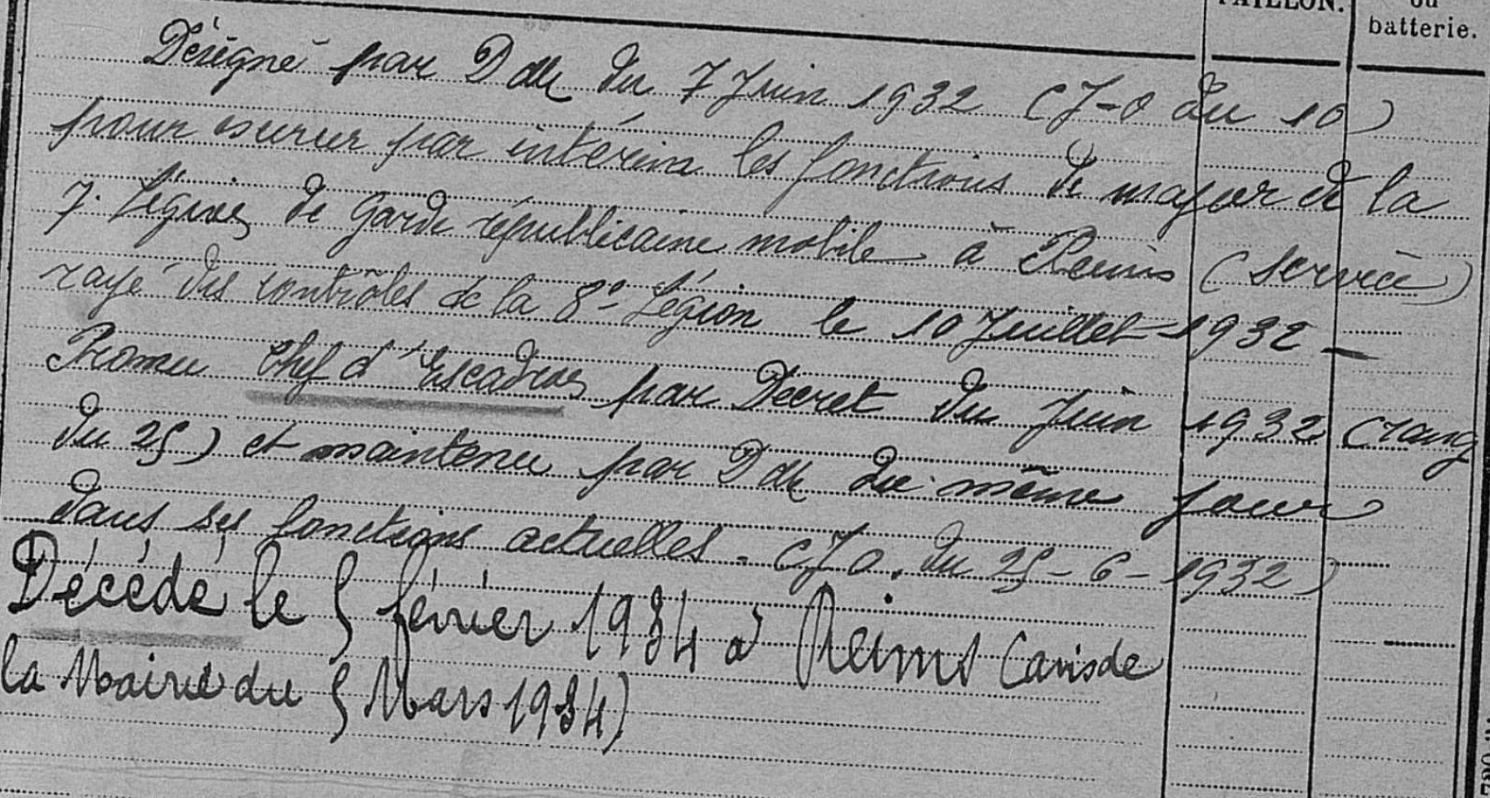 TAILLON.
ou
batterie.
Désigné par D du 7 Juin 1932 (J-O du 10)
pour assurer par intérim les fonctions de major de la
7e Légion de Garde républicaine mobile à Reims (Service)
rayé des contrôles de la 8e Légion le 10 Juillet 1932 —
Promu Chef d'Escadron par Décret du Juin 1932 (rang
du 25) et maintenu par D du même jour
dans ses fonctions actuelles. (J.O. du 25-6-1932)
Décédé le 5 février 1984 à Reims (avis de
la Mairie du 5 Mars 1984)